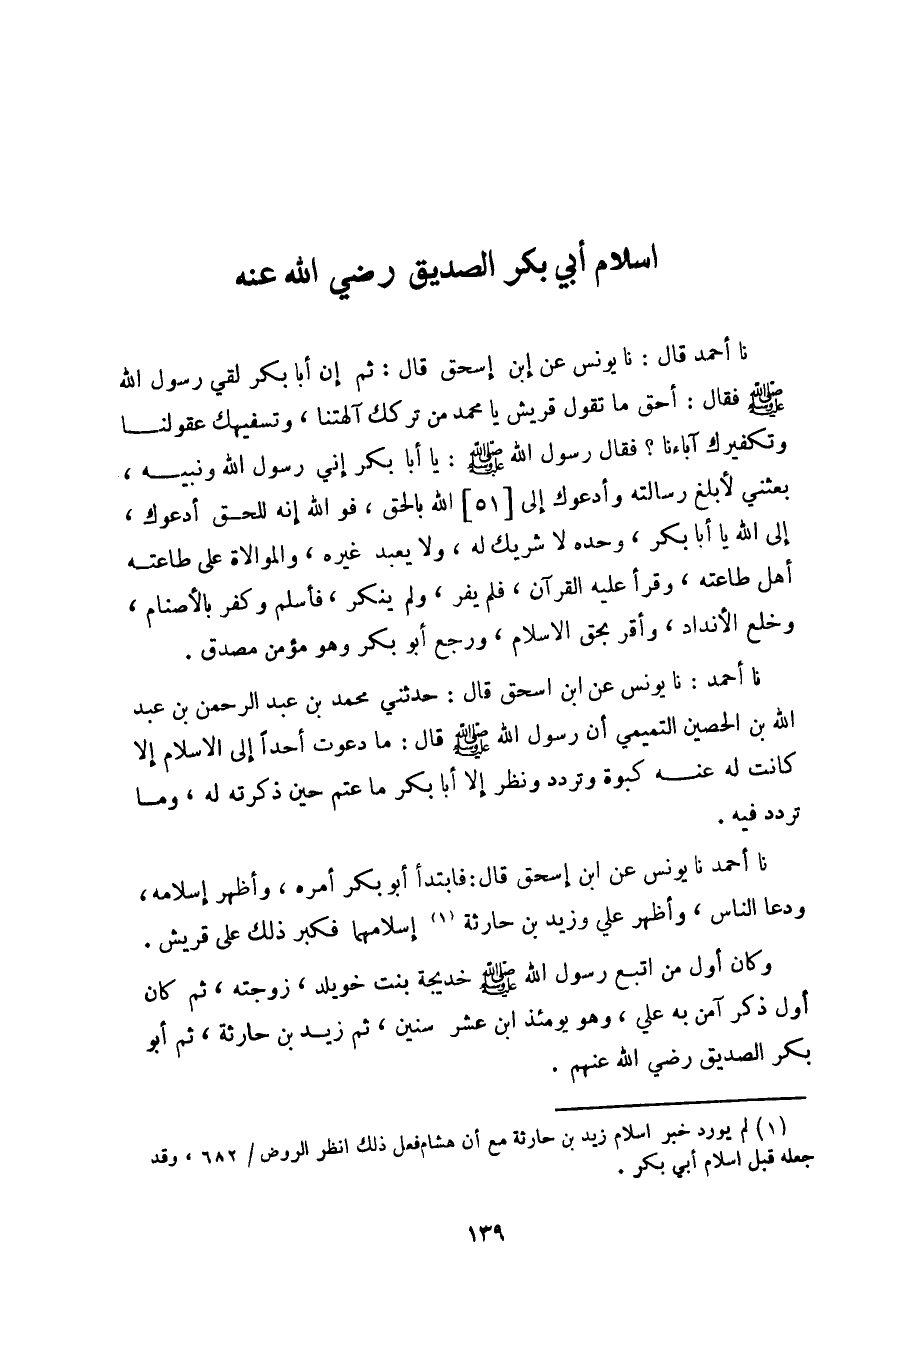 اسلام أبي بكر الصديق رضي الله عنه
نا أحمد قال : نا يونس عن إبن إسحق قال : ثم إن أبا بكر لقي رسول الله
ﷺ فقال : أحق ما تقول قريش يا محمد من تركك آلهتنا ، وتسفيهك عقولنـــا
وتكفيرك آباءنا ؟ فقال رسول الله ﷺ : يا أبا بكر إني رسول الله ونبيـــه ،
بعثني لأبلغ رسالته وأدعوك إلى [٥١] الله بالحق ، فو الله إنه للحـق أدعوك ،
إلى الله يا أبا بكر ، وحده لا شريك له ، ولا يعبد غيره ، والموالاة على طاعتـه
أهل طاعته ، وقرأ عليه القرآن ، فلم يفر ، ولم ينكر ، فأسلم وكفر بالأصنام ،
وخلع الأنداد ، وأقر بحق الاسلام ، ورجع أبو بكر وهو مؤمن مصدق .
نا أحمد : نا يونس عن ابن اسحق قال : حدثني محمد بن عبد الرحمن بن عبد
الله بن الحصين التميمي أن رسول الله ﷺ قال : ما دعوت أحداً إلى الاسلام إلا
كانت له عنـــه كبوة وتردد ونظر إلا أبا بكر ما عتم حين ذكرته له ، ومـا
تردد فيه .
نا أحمد نا يونس عن ابن إسحق قال:فابتدأ أبو بكر أمره ، وأظهر إسلامه،
ودعا الناس ، وأظهر علي وزيد بن حارثة (١) إسلامهما فكبر ذلك على قريش .
وكان أول من اتبـع رسول الله ﷺ خديجة بنت خويلد ، زوجته ، ثم كان
أول ذكر آمن به علي ، وهو يومئذ ابن عشر سنين ، ثم زيـد بن حارثة ، ثم أبو
بكر الصديق رضي الله عنهم .
(١) لم يورد خبر اسلام زيد بن حارثة مع أن هشام فعل ذلك انظر الروض / ٦٨٢ ، وقد
جعله قبل اسلام أبي بكر .
١٣٩